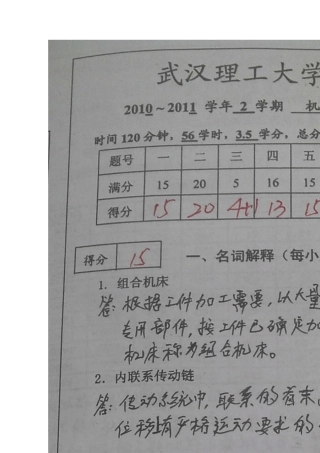 武汉理工大学
2010～2011 学年 2 学期 机
时间 120 分钟，56 学时，3.5 学分，总分
题号 一 二 三 四 五
满分 15 20 5 16 15
得分 15 20 4+1 13 15
得分 15 一、名词解释（每小
1. 组合机床
答：根据工件加工需要，以大量
专用部件，按工件已确定加
机床称为组合机床。
2. 内联系传动链
答：传动系统中，联系的有末
位移有严格运动要求的